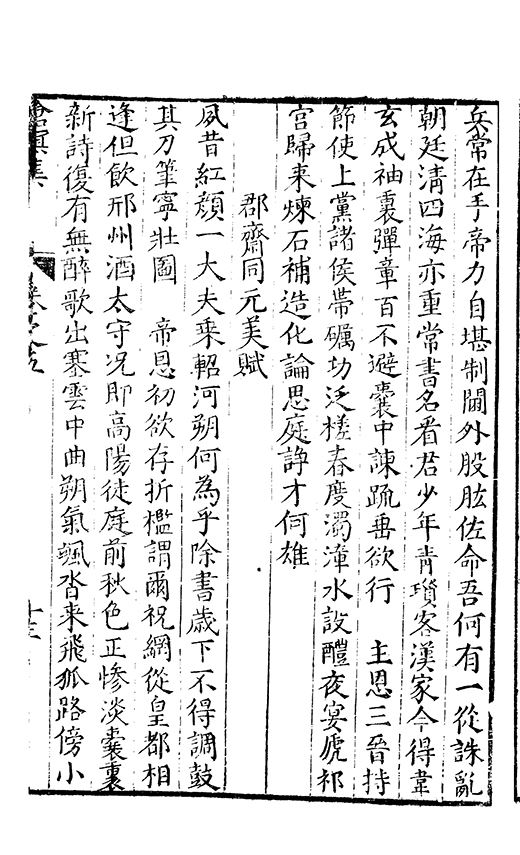 兵常在手帝力自堪制閫外股肱佐命吾何有一從誅亂
朝廷清四海亦重常書名看君少年青瑣客漢家今得韋
玄成袖裏彈章百不避囊中諫疏垂欲行　主恩三晉持
節使上黨諸侯帶礪功泛槎春度濁漳水設醴夜宴虒祁
宮歸来煉石補造化論思庭諍才何雄
郡齋同元美賦
夙昔紅顏一大夫乘軺河朔何為乎除書歲下不得調鼓
其刀筆寧壯圖　帝恩初欲存折檻謂爾祝網從皇都相
逢但飲邢州酒太守况即高陽徒庭前秋色正慘淡囊裏
新詩復有無醉歌出塞雲中曲朔氣颯沓来飛狐路傍小
滄溟集
卷之五
十三